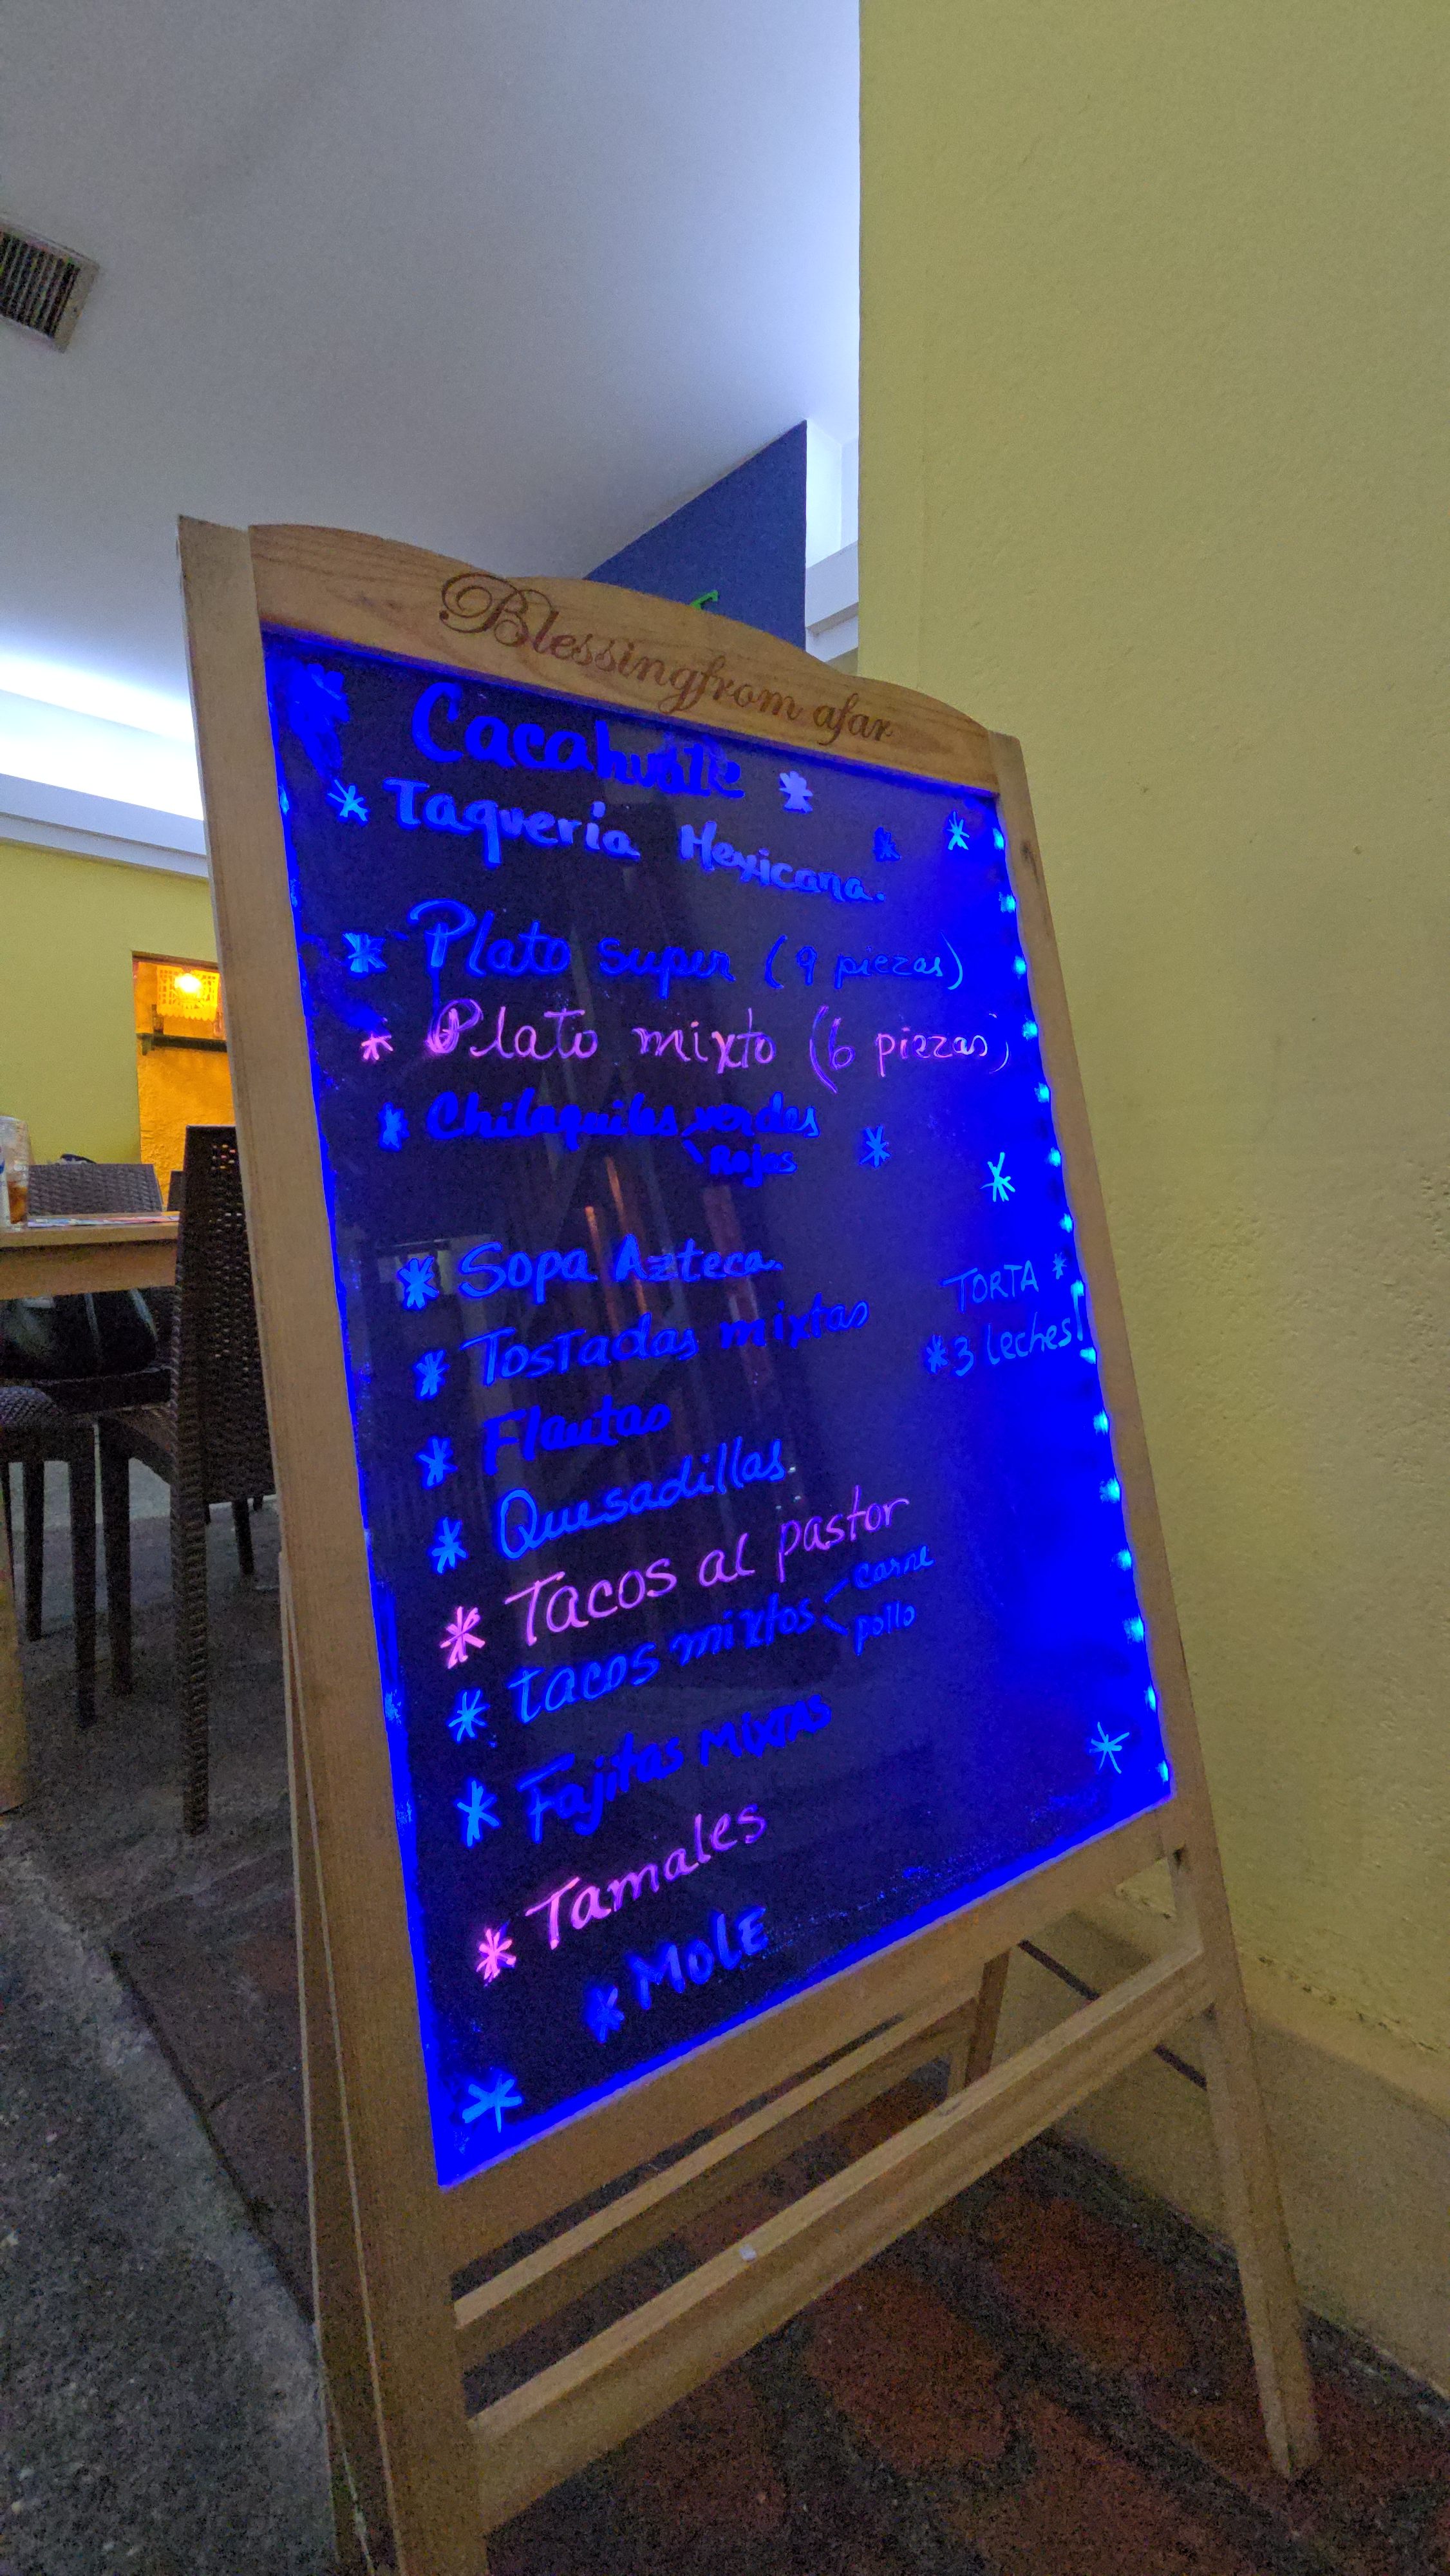 Blessingfrom afar
Cacahuate
Taqueria Mexicana.
Plato super (9 piezas)
Plato mixto (6 piezas)
Chilaquiles verdes
Rojos
Sopa Azteca.
Tostadas mixtas
TORTA
3 leches!
Flautas
Quesadillas.
Tacos al pastor
tacos mixtos carne
pollo
Fajitas MIXTAS
Tamales
MolE